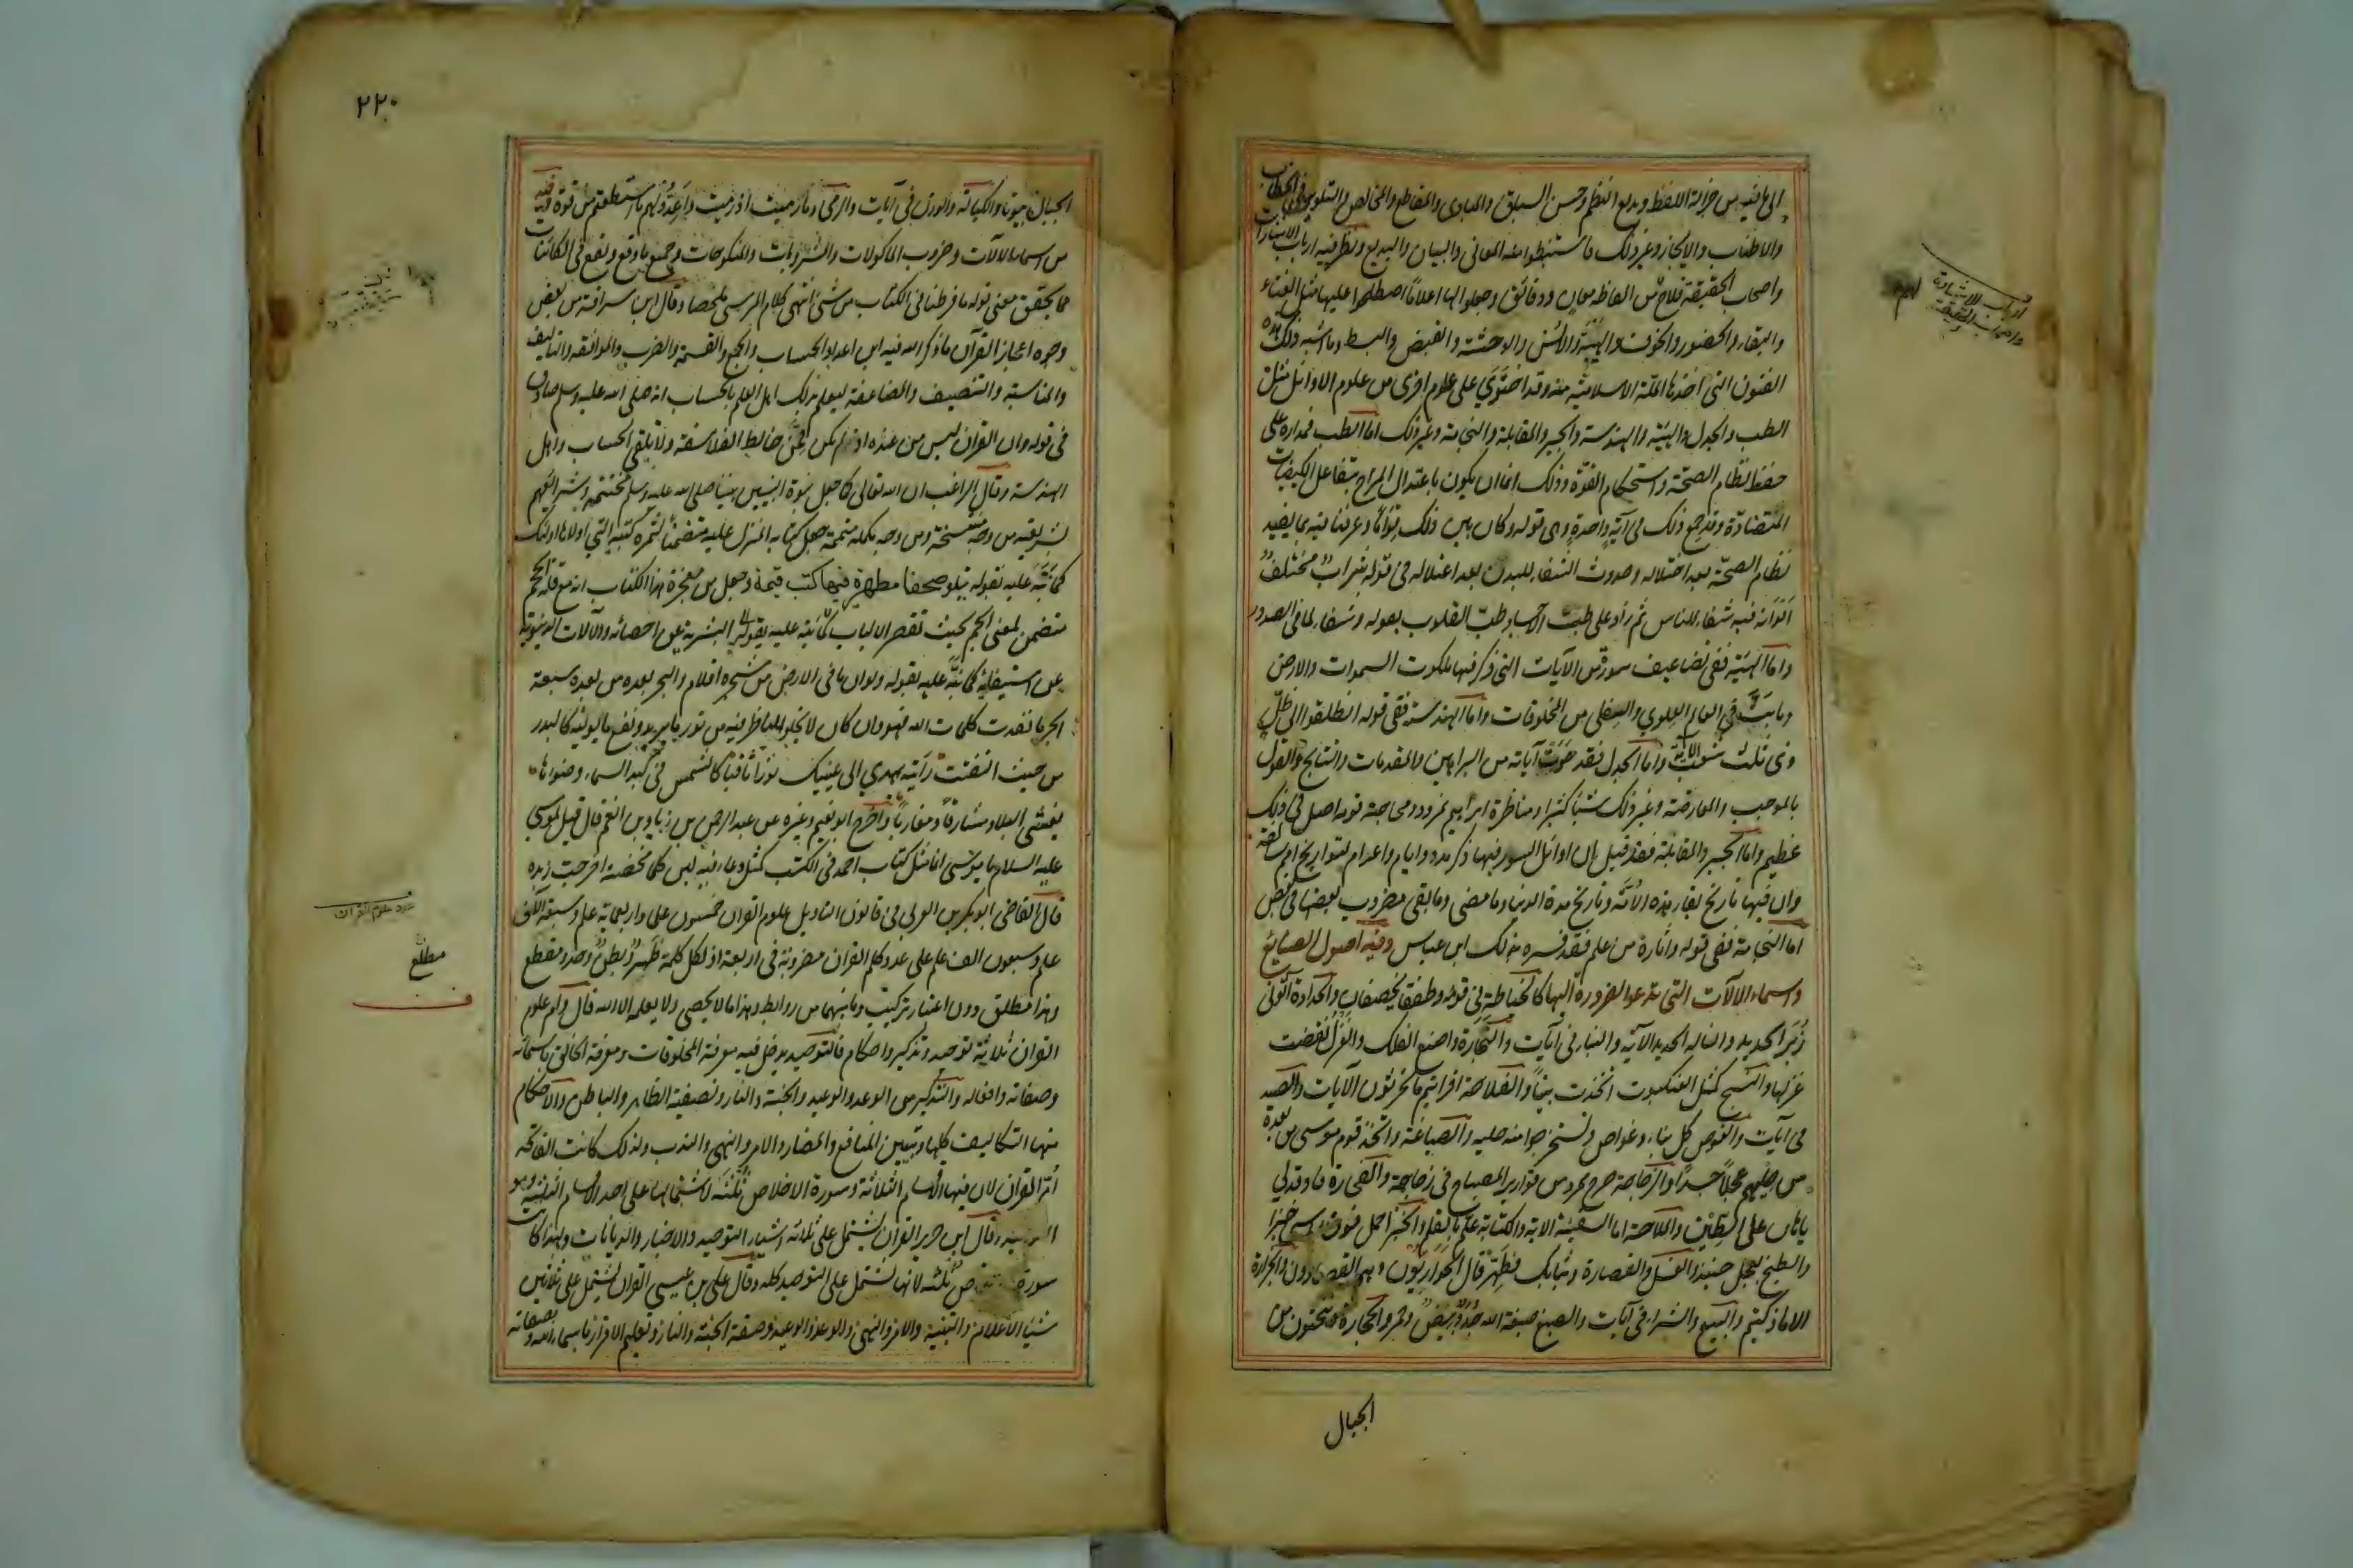 الى ما فيه من جزالة اللفظ وبديع النظم وحسن السياق والمبادى والمقاطع والمخالص والتلوين في الخطاب
والاطناب والايجاز وغير ذلك فاستنبطوا منه المعاني والبيان والبديع ونظر فيه ارباب الاشارات
واصحاب الحقيقة فلاح من الفاظه معان ودقائق وجعلوا لها اعلاما اصطلحوا عليها مثل الفناء
والبقاء والحضور والخوف والهيبة والانس والوحشة والقبض والبسط وما اشبه ذلك هذه
الفنون التي اخذها الملة الاسلامية منه وقد احتوى على علوم اخرى من علوم الاوائل مثل
الطب والجدل والهيئة والهندسة والجبر والمقابلة والنجامة وغير ذلك اما الطب فمداره على
حفظ نظام الصحة واستحكام القوة وذلك انما ان يكون باعتدال المزاج بتفاعل الكيفيات
المتضادة وقد جمع ذلك في آية واحدة وهى قوله وكان بين ذلك قواما وعرفنا فيه بما يفيد
نظام الصحة بعد اختلاله وحدوث الشفاء للبدن بعد اعتلاله في قوله شراب مختلف
الوانه فيه شفاء للناس ثم زاد على طب الاجساد طب القلوب بقوله وشفاء لما في الصدور
واما الهيئة ففى تضاعيف سوره من الآيات التي ذكر فيها ملكوت السموات والارض
وما بث في العالم العلوي والسفلى من المخلوقات واما الهندسة ففى قوله انطلقوا الى ظل
ذى ثلث شعب الاية واما الجدل فقد حوت آياته من البراهين والمقدمات والنتايج والقول
بالموجب والمعارضة وغير ذلك شيئا كثيرا ومناظرة ابراهيم نمرود ومحاجة قومه اصل في ذلك
عظيم واما الجبر والمقابلة فقد قيل ان اوائل السور فيها ذكر مدد وايام واعوام لتواريخ امم سالفة
وان فيها تاريخ بقاء هذه الامة وتاريخ مدة الدنيا وما مضى وما بقى مضروب بعضها في بعض
اما النجامة ففى قوله واثارة من علم فقد فسره بذلك ابن عباس وفيه اصول الصنايع
واسماء الالات التي تدعو الضرورة اليها كالخياطة في قوله وطفقا يخصفان والحدادة آتوني
زبر الحديد والنا له الحديد الآية والبناء في آيات والنجارة واصنع الفلك والغزل نقضت
غزلها والنسج كمثل العنكبوت اتخذت بيتا والفلاحة افرايتم ما تحرثون الآيات والصيد
في آيات والغوص كل بناء وغواص وتستخرجوا منه حلية والصياغة واتخذ قوم موسى من بعده
من حليهم عجلا جسدا والزجاجة صرح ممرد من قوارير المصباح في زجاجة والفخارة فاوقد لي
ياهامان على الطين والملاحة اما السفينة الاية والكتابة علم بالقلم والخبز احمل فوق راسي خبزا
والطبخ بعجل حنيذ والغسل والقصارة وثيابك فطهر قال الحواريون وهم القصارون والجزارة
الا ما ذكيتم والبيع والشراء في آيات والصبغ صبغة الله جدد بيض وحمر والحجارة وتنحتون من
الجبال
ارباب الاشارة
واصحاب الحقيقة
٢٢٠
الجبال بيوتا والكيالة والوزن في آيات والرمى وما رميت اذ رميت واعدوا لهم ما استطعتم من قوة وفيه
من اسماء الالات وضروب الماكولات والمشروبات والمنكوحات وجميع ما وقع ويقع في الكائنات
مما يحقق معنى قوله ما فرطنا في الكتاب من شئ انتهى كلام المرسى ملخصا وقال ابن سراقة من بعض
وجوه اعجاز القرآن ما ذكر الله فيه اين اعداد الحساب والجمع والقسمة والضرب والموافقة والتاليف
والمناسبة والتنصيف والمضاعفة ليعلم بذلك اهل العلم بالحساب انه صلى الله عليه وسلم صادق
في قوله وان القرآن ليس من عنده اذ لم يكن ممن خالط الفلاسفة ولا تلقى الحساب واهل
الهندسة وقال الراغب ان الله تعالى كما جعل نبوة النبيين بنبينا صلى الله عليه وسلم مختتمة وشرائعهم
بشريعته من وجه منتسخة ومن وجه مكملة متممة جعل كتابه المنزل عليه متضمنا لثمرة كتبه التي اولاها اولئك
كما نبه عليه بقوله يتلو صحفا مطهرة فيها كتب قيمة وجعل من معجزة هذا الكتاب انه مع قلة الحجم
متضمن لمعنى الجم بحيث تقصر الالباب البشرية عن احصائه والآلات الدنيوية
عن استيفائه كما نبه عليه بقوله ولو ان ما في الارض من شجرة اقلام والبحر يمده من بعده سبعة
ابحر ما نفدت كلمات الله فهو وان كان لا يخلو للناظر فيه من نور ما يريه ونفع ما يوليه كالبدر
من حيث التفتت رايته يهدي الى عينيك نورا ثاقبا كالشمس في كبد السماء وضوءها
يغشى البلاد مشارقا ومغاربا واخرج ابو نعيم وغيره عن عبد الرحمن بن زياد بن انعم قال قيل لموسى
عليه السلام يا موسى انما مثل كتاب احمد في الكتب كمثل وعاء فيه لبن كلما مخضته اخرجت زبده
قال القاضى ابو بكر بن العربي في قانون التاويل علوم القرآن خمسون علم واربعماية علم وسبعة آلاف
علم وسبعون الف علم على عدد كلم القرآن مضروبة في اربعة اذ لكل كلمة ظهر وبطن وحد ومقطع
وهذا مطلق دون اعتبار تركيب وما بينهما من روابط وهذا ما لا يحصى ولا يعلمه الا الله قال وام علوم
القرآن ثلاثة توحيد وتذكير واحكام فالتوحيد يدخل فيه معرفة المخلوقات ومعرفة الخالق باسمائه
وصفاته وافعاله والتذكير من الوعد والوعيد والجنة والنار وتصفية الظاهر والباطن والاحكام
منها التكاليف كلها وتبيين المنافع والمضار والامر والنهى والندب ولذلك كانت الفاتحة
ام القرآن لان فيها الاقسام الثلاثة وسورة الاخلاص ثلثه لاشتمالها على احد الاقسام الثلاثة وهو
التوحيد وقال ابن جرير القرآن يشتمل على ثلاثة اشياء التوحيد والاخبار والديانات ولهذا كانت
سورة الاخلاص ثلثه لانها تشتمل على التوحيد كله وقال على بن عيسى القرآن يشتمل على ثلاثين
شيئا الاعلام والتنبيه والامر والنهى والوعد والوعيد وصفة الجنة والنار وتعليم الاقرار باسم الله وصفاته
عدد علوم القرآن
مطلع